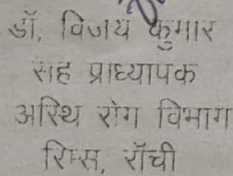 डॉ. विजय कुमार
सह प्राध्यापक
अस्थि रोग विभाग
रिम्स, राँची